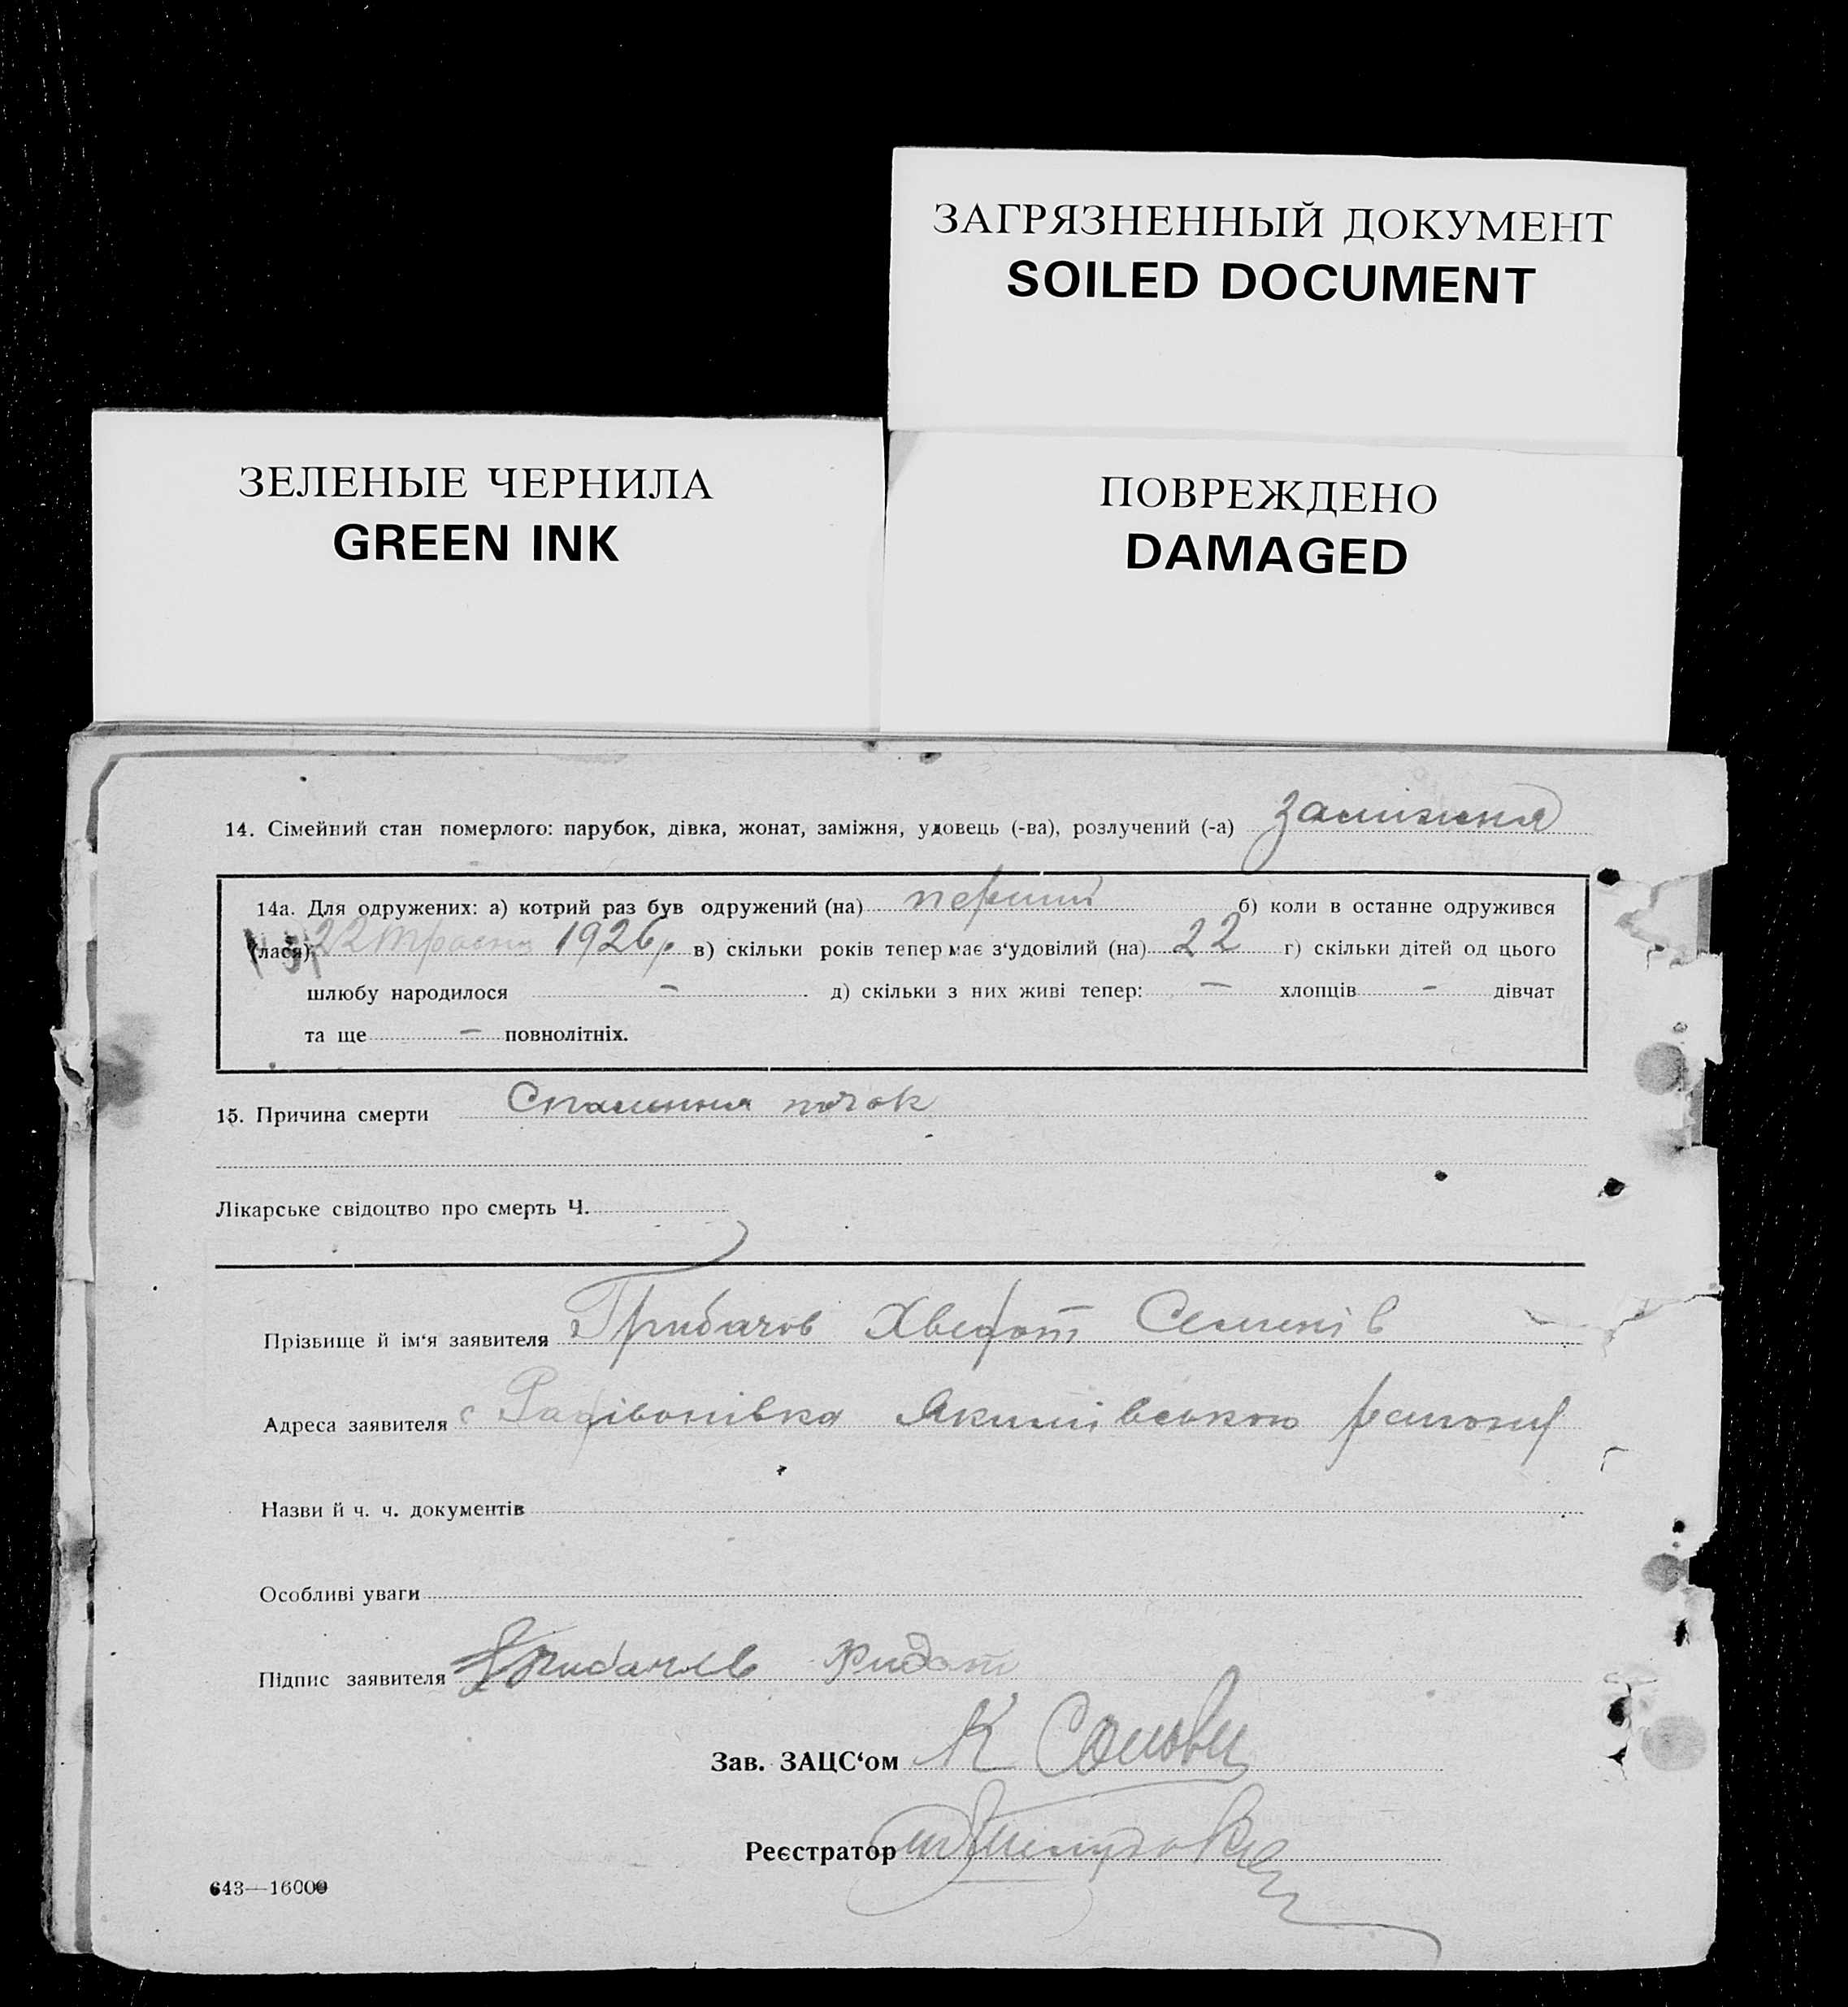 ЗАГРЯЗНЕННЫЙ ДОКУМЕНТ
SOILED DOCUMENT
ЗЕЛЕНЫЕ ЧЕРНИЛА
GREEN INK
ПОВРЕЖДЕНО
DAMAGED
14. Сімейний стан померлого: парубок, дівка, жонат, заміжня, удовець (-ва), розлучений (-а) заміжня
14а. Для одружених: а) котрий раз був одружений (на) перший б) коли в останне одружився
(лася) 22 1926 р. в) скільки років тепер має з‘удовілий (на) 22 г) скільки дітей од цього
шлюбу народилося — д) скільки з них живі тепер: — хлопців — дівчат
та ще — повнолітніх.
15. Причина смерти Спалення почок
Лікарське свідоцтво про смерть Ч.
Прізьвище й ім‘я заявителя Грибачов Хведот Семенів
Адреса заявителя с Радівонівка Якимівського району
Назви й ч. ч. документів
Особливі уваги
Підпис заявителя Грибачев Фидот
Зав. ЗАЦС‘ом К
Реєстратор
643—16000